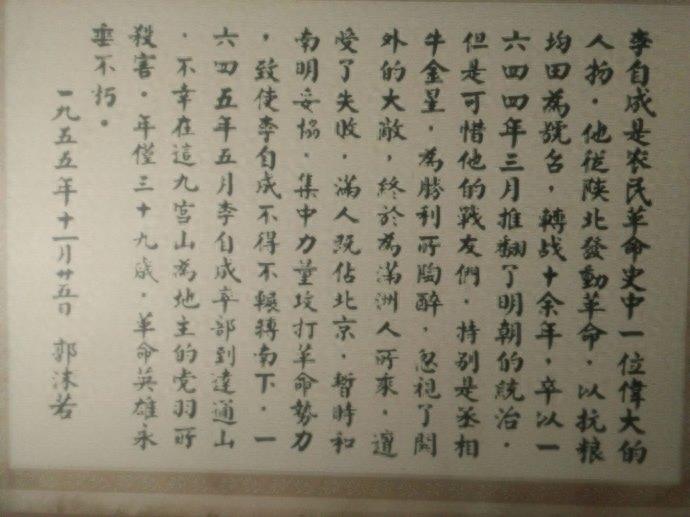 李自成是农民革命史中一位偉大的
人物．他從陝北發動革命．以抗粮
均田為號召，轉战十余年，卒以一
六四四年三月推翻了明朝的統治．
但是可惜他的戰友們．特别是丞相
牛金星．為勝利所陶醉．忽視了関
外的大敵，終於為滿洲人所乘．遭
受了失敗．滿人既佔北京．暫時和
南明妥協．集中力量攻打革命势力
，致使李自成不得不輾轉南下．一
六四五年五月李自成率部到達通山
．不幸在這九宫山為地主的党羽所
殺害．年僅三十九歲．革命英雄永
垂不朽。
一九五五年十一月廿五日 郭沫若